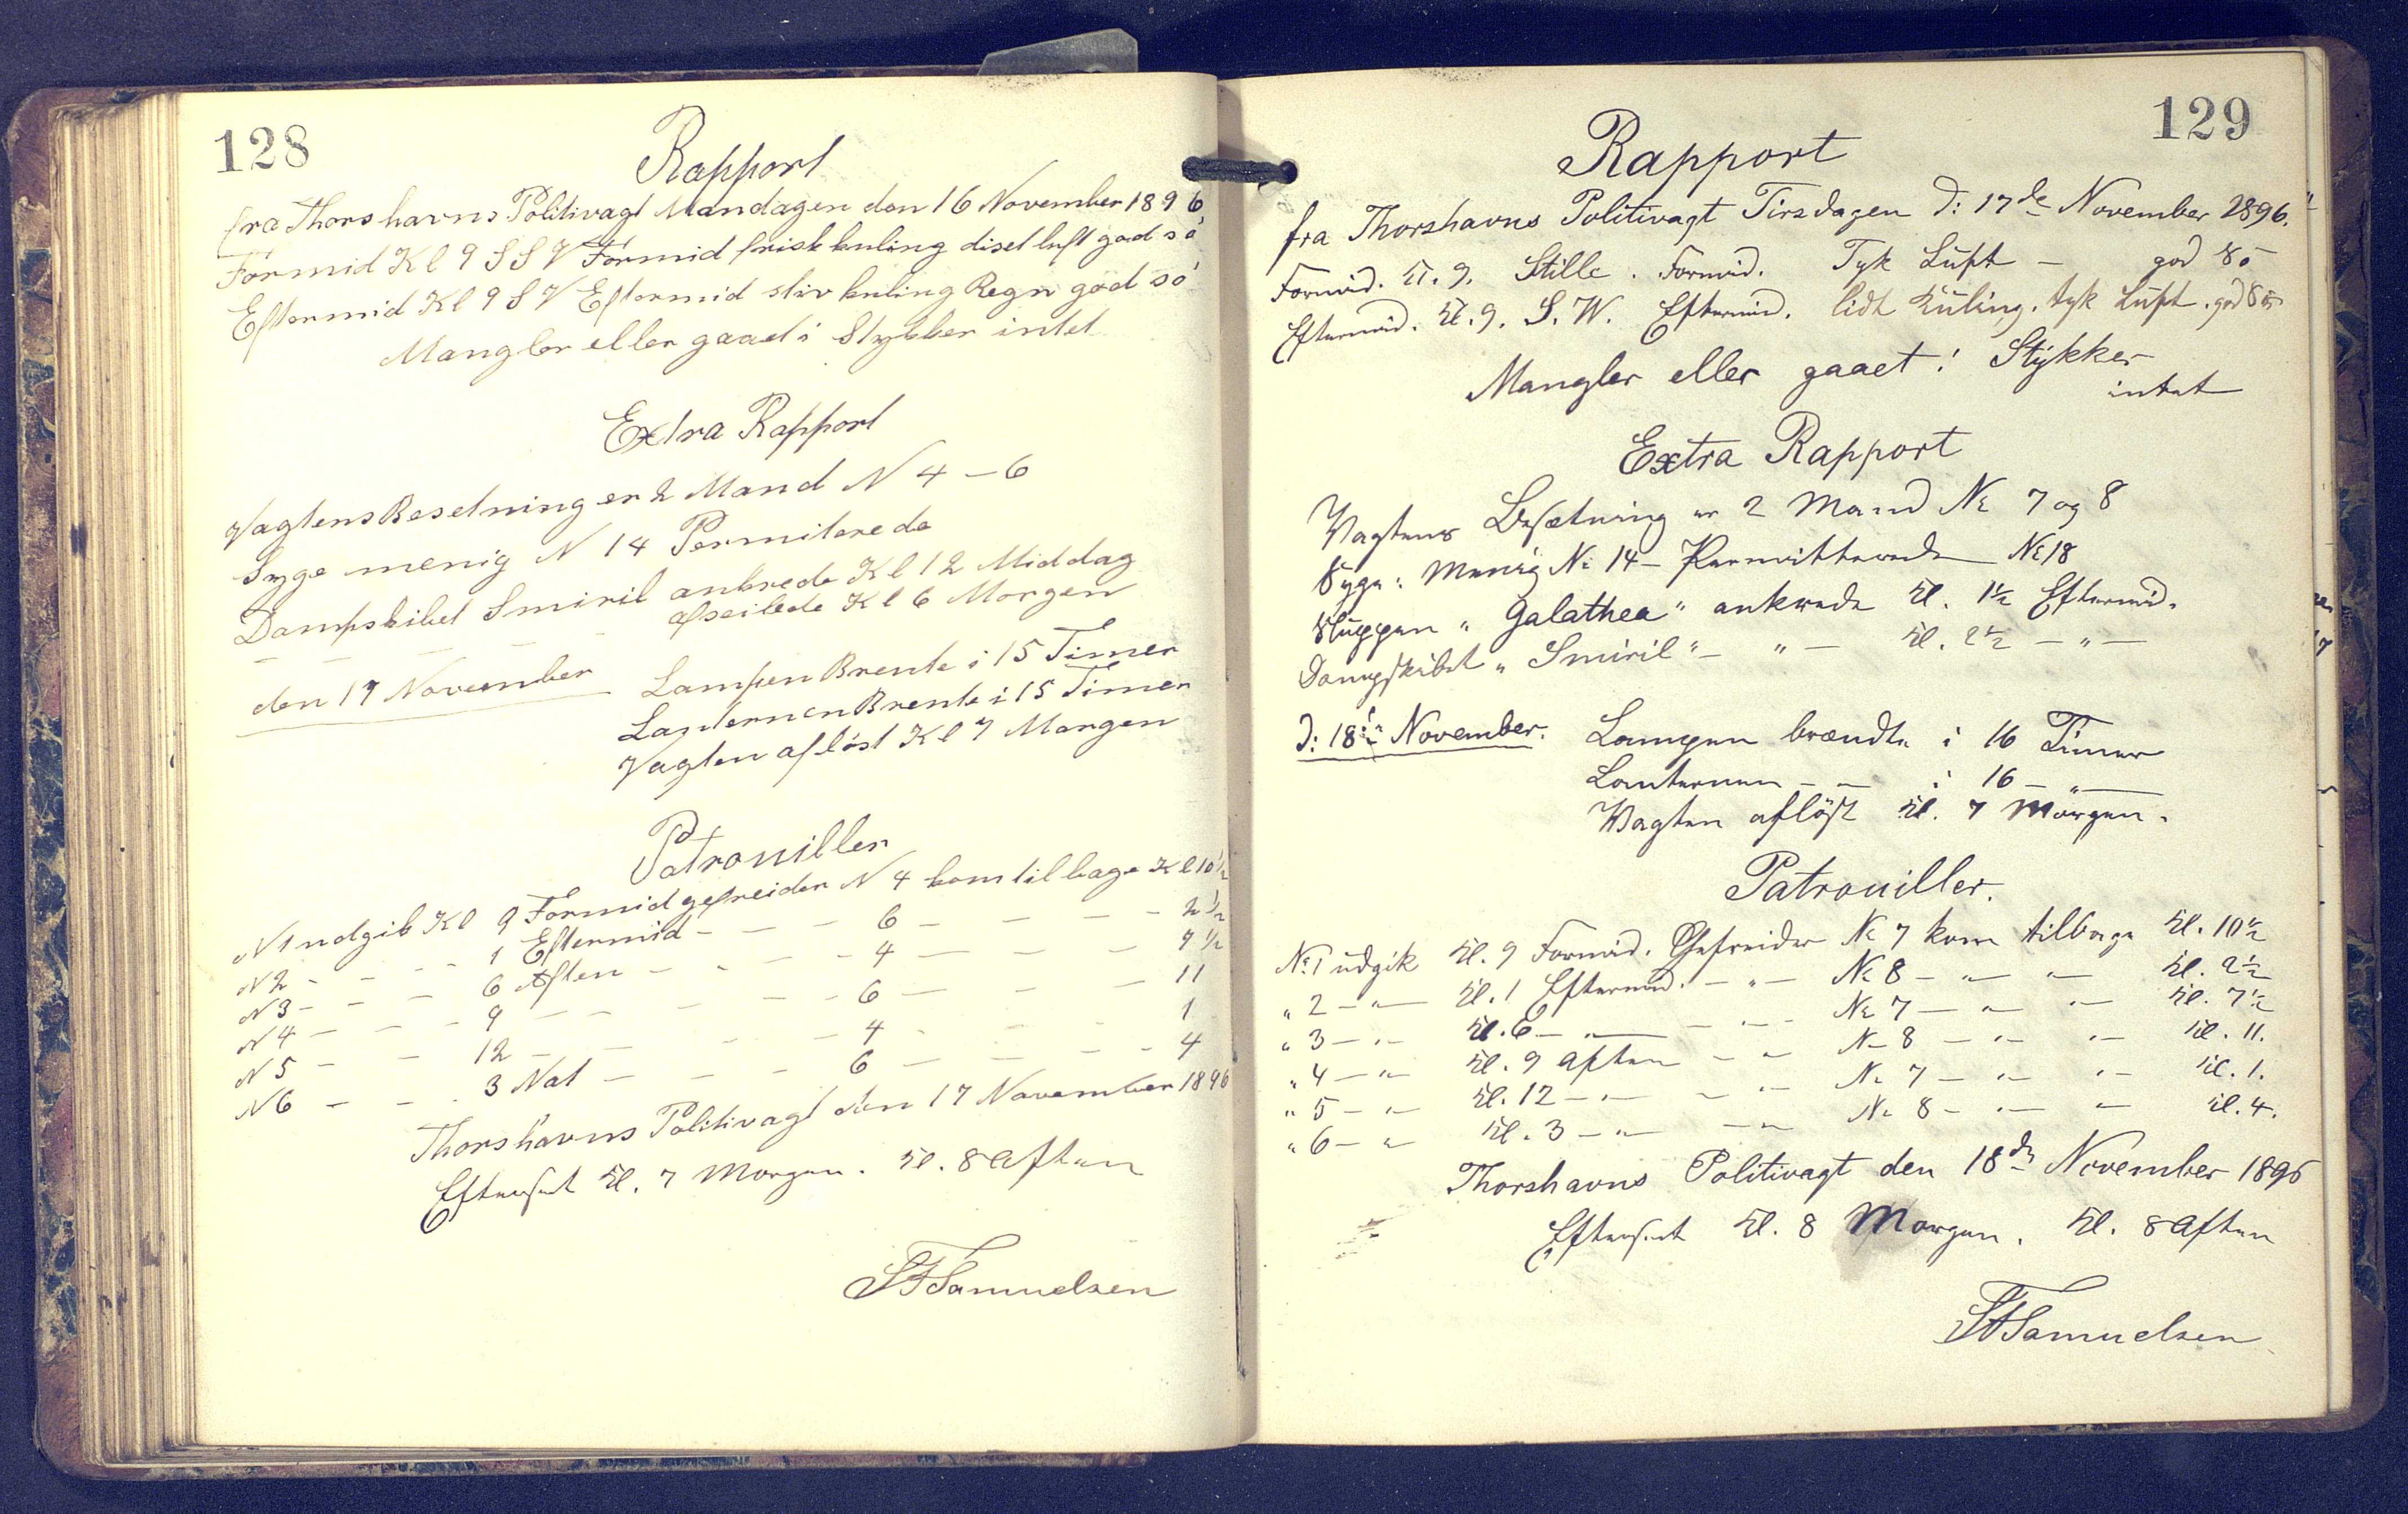 128
Rapport
fra Thorshavns Politivagt Mandagen den 16 November 1896
Formid Kl 9 S S V Formid frisk kuling diset luft god sö
Eftermid Kl 9 S V Eftermid stiv kuling Regn god sö
Mangler eller gaaet i Stykker intet
Extra Rapport
Vagtens Besetning er 2 Mand N 4 – 6
Syge menig N 14 Permiterede
Dampskibet Smiril ankrede Kl 12 Middag
– – – – afseilede Kl 6 Morgen
den 17 November Lampen Brente i 15 Timer
Lanternen Brente i 15 Timer
Vagten aflöst Kl 7 Morgen
Patrouiller
N 1 udgik Kl 9 Formid gefreider N 4 kom tilbage Kl 10 1/2
N 2 – – – 1 Eftermid – – – 6 – – – – 2 1/2
N 3 – – – 6 Aften – – – 4 – – – 7 1/2
N 4 – – – 9 – – – – 6 – – – 11
N 5 – – 12 – – – – 4 – – – 1
N 6 – – 3 Nat – – – 6 – – – – 4
Thorshavns Politivagt den 17 November 1896
Efterset Kl. 7 Morgen. Kl. 8 Aften
SFSamuelsen
129
Rapport
fra Thorshavns Politivagt Tirsdagen D: 17de November 1896.
Formid. Kl. 9. Stille. Formid. Tyk Luft – god Sö
Eftermid. Kl. 9. S. W. Eftermid. lidt Kuling. tyk Luft. god Sö
Mangler eller gaaet i Stykker
intet
Extra Rapport
Wagtens Besætning er 2 Mand No 7 og 8
Syge: Menig No 14 – Permitterede No 18
Sluppen "Galathea" ankrede Kl. 1 1/2 Eftermid.
Dampskibet "Smiril" – " – Kl. 2 1/2 – " –
D: 18de November. Lampen brændte i 16 Timer
Lanternen – – i 16 – " –
Wagten aflöst Kl. 7 Morgen.
Patrouiller.
No 1 udgik Kl. 9 Formid. Gefreider No 7 kom tilbage Kl. 10 1/2
" 2 – " – Kl. 1 Eftermid. – " – No 8 – " – " – Kl. 2 1/2
" 3 – " – Kl. 6 – " – – " – No 7 – " – " – Kl. 7 1/2
" 4 – " – Kl. 9 Aften – " – No 8 – " – " – Kl. 11.
" 5 – " – Kl. 12 – " – – " – No 7 – " – " – Kl. 1.
" 6 – " – Kl. 3 – " – – " – No 8 – " – " – Kl. 4.
Thorshavns Politivagt den 18de November 1896
Efterset Kl. 8 Morgen. Kl. 8 Aften
SFSamuelsen